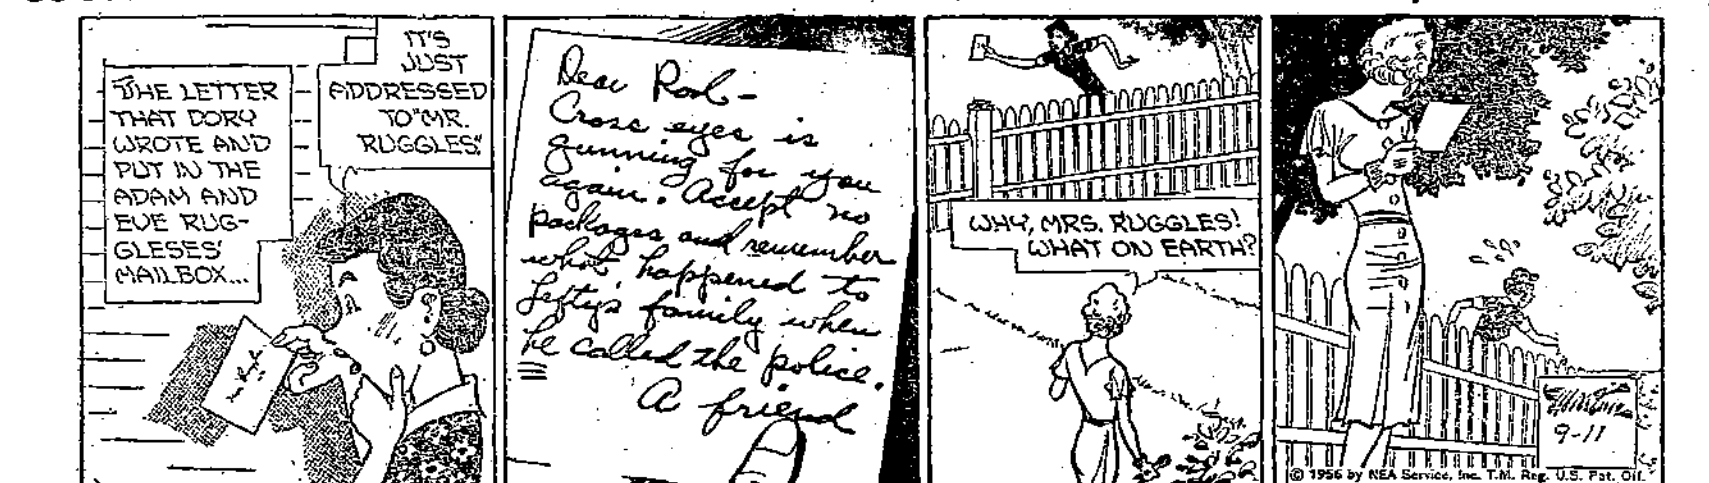 THE LETTER
THAT DORY
WROTE AND
PUT IN THE
ADAM AND
EVE RUG-
GLESES'
MAILBOX...
IT'S
JUST
ADDRESSED
TO "MR.
RUGGLES"
Dear Rod-
Cross eyes is
gunning for you
again. Accept no
packages and remember
what happened to
Lefty's family when
he called the police.
A friend
WHY, MRS. RUGGLES!
WHAT ON EARTH?
9-11
© 1956 by NEA Service, Inc. T.M. Reg. U.S. Pat. Off.